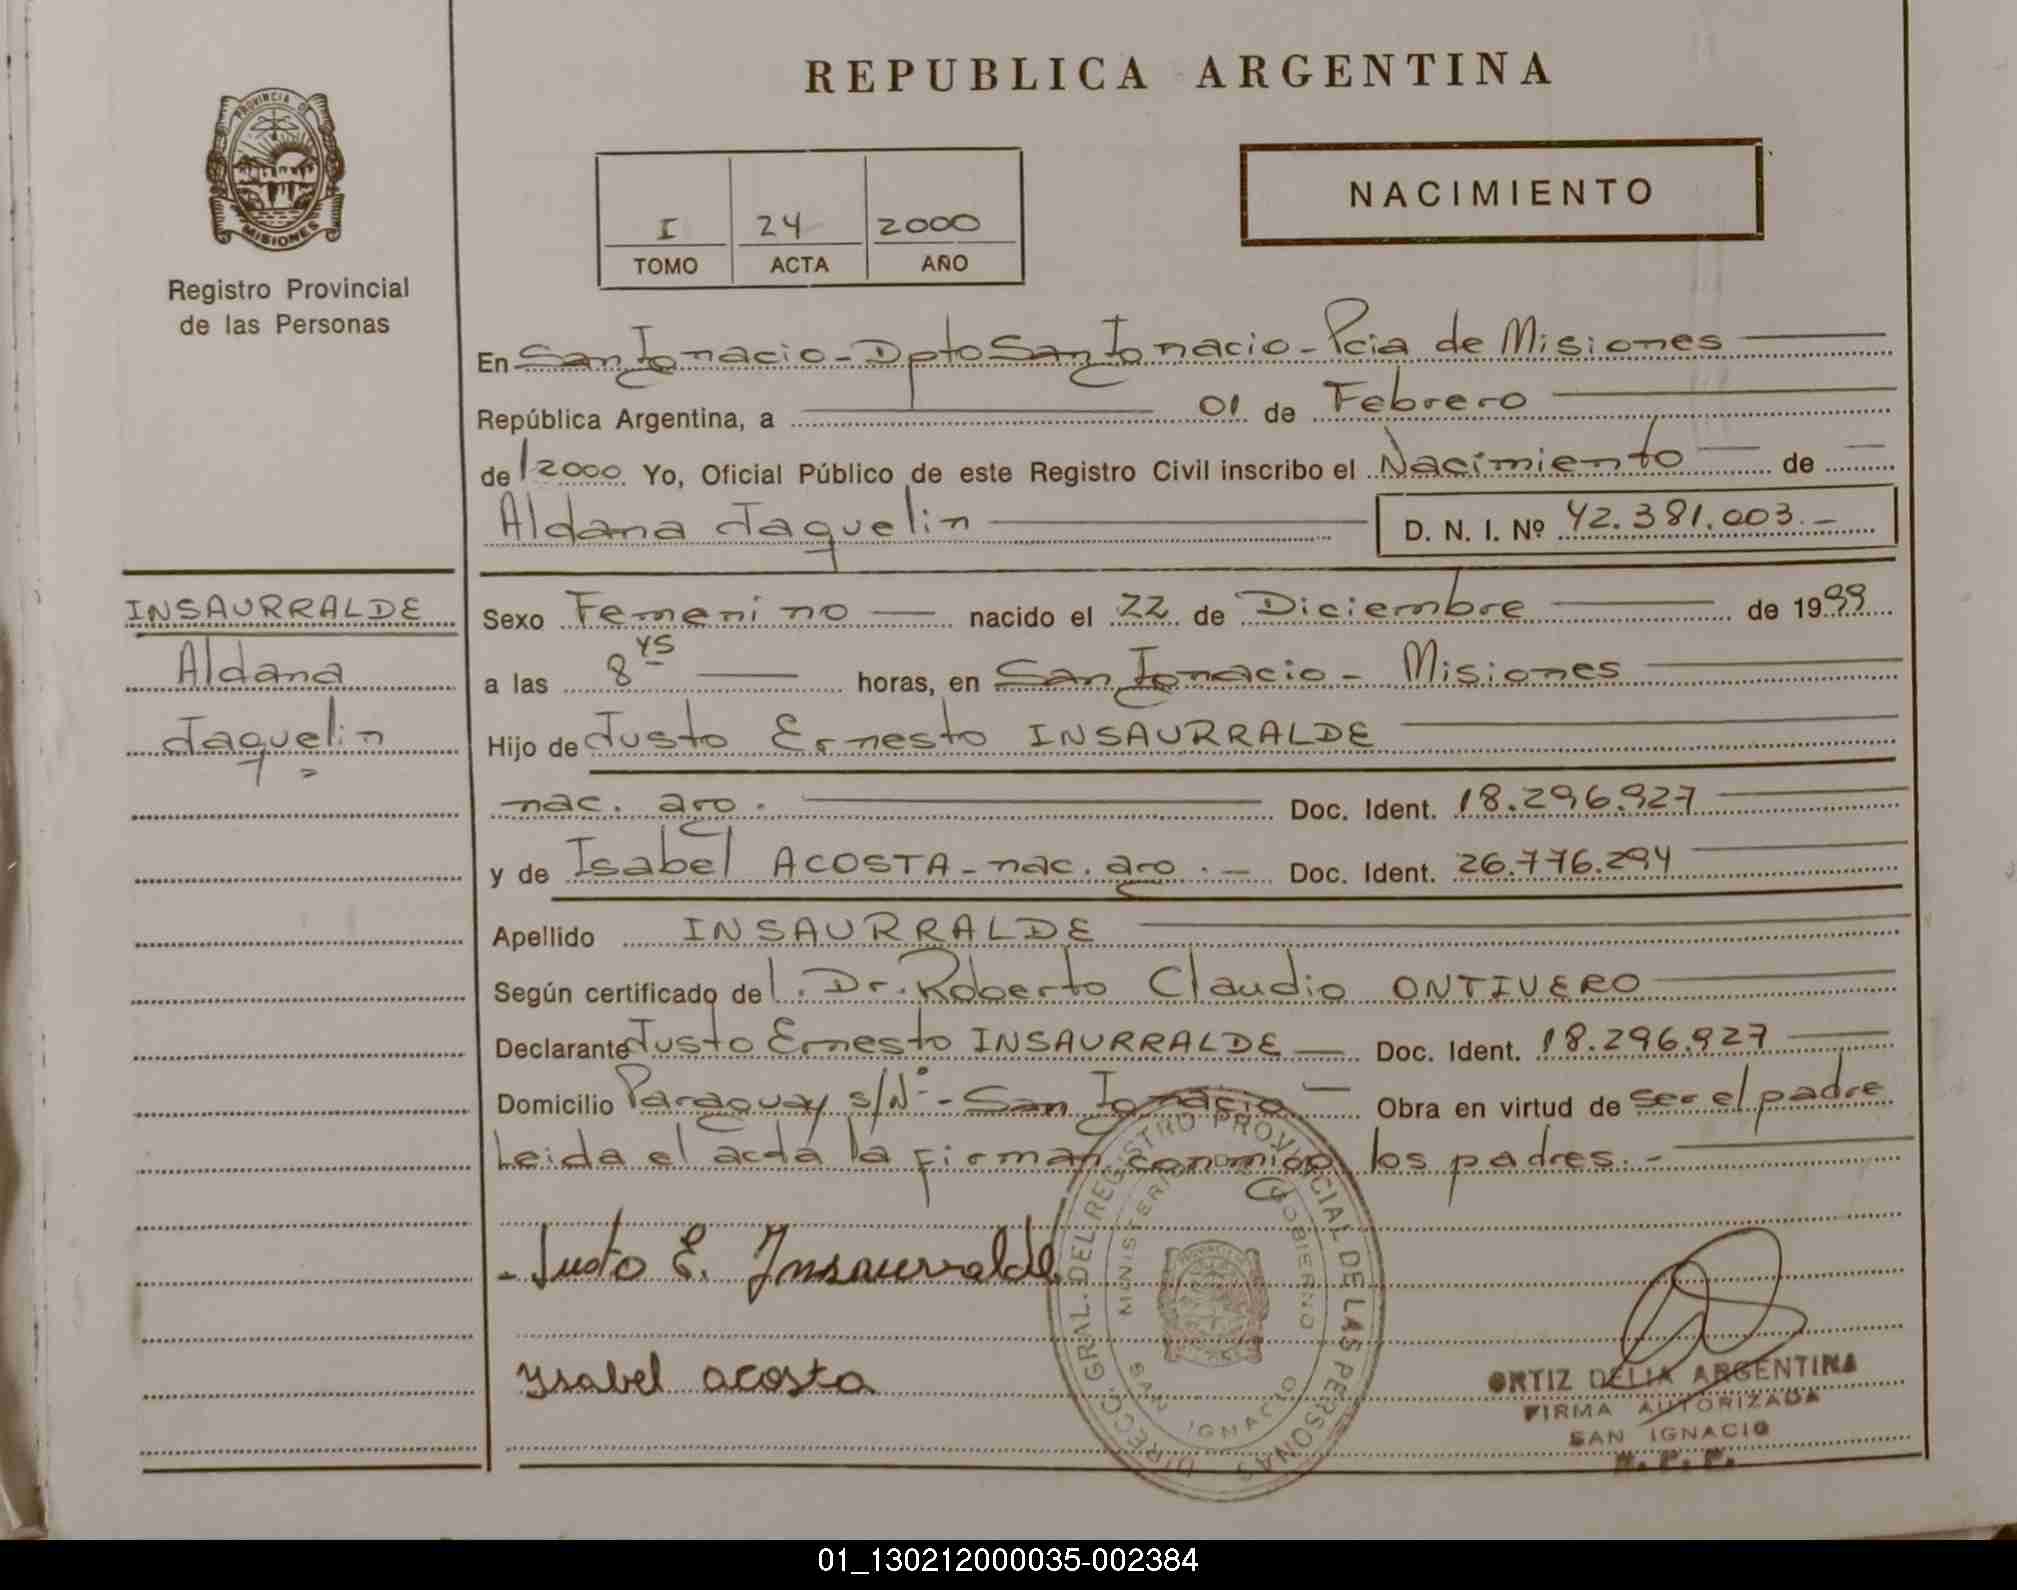 REPUBLICA ARGENTINA
PROVINCIA DE MISIONES
Registro Provincial
de las Personas
I 24 2000
TOMO ACTA AÑO
NACIMIENTO
En San Ignacio - Dpto San Ignacio - Pcia de Misiones
República Argentina, a 01 de Febrero
de 2000 Yo, Oficial Público de este Registro Civil inscribo el Nacimiento de
Aldana Jaquelin D. N. I. Nº 42.381.003.-
INSAURRALDE
Aldana
Jaquelin
Sexo Femenino nacido el 22 de Diciembre de 1999
a las 8 45 horas, en San Ignacio - Misiones
Hijo de Justo Ernesto INSAURRALDE
nac. arg. Doc. Ident. 18.296.927
y de Isabel ACOSTA - nac. arg. - Doc. Ident. 26.776.294
Apellido INSAURRALDE
Según certificado del Dr. Roberto Claudio ONTIVERO
Declarante Justo Ernesto INSAURRALDE Doc. Ident. 18.296.927
Domicilio Paraguay s/Nº - San Ignacio Obra en virtud de ser el padre
Leida el acta la firman conmigo los padres. -
Justo E. Insaurralde
Ysabel acosta
DIRECC. GRAL. DEL REGISTRO PROVINCIAL DE LAS PERSONAS
MINISTERIO GOBIERNO
SAN IGNACIO
ORTIZ DELIA ARGENTINA
FIRMA AUTORIZADA
SAN IGNACIO
01_130212000035-002384